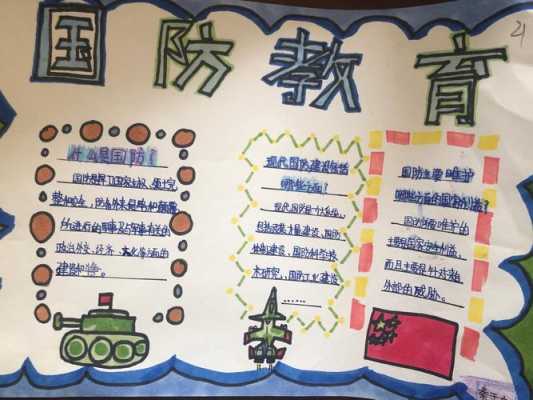 国防教育
21
什么是国防？
国防是为了国家主权、领土完
整和安全，防备外来侵略和颠覆
所进行的军事及与军事有关的
政治、外交、经济、文化等方面的
建设和斗争。
现代国防建设包括
哪些方面？
现代国防是个大系统，
包括武装力量建设、国防
体制建设、国防科学技
术研究、国防工业建设
……
国防主要维护
哪些方面的国家利益？
国防维护的
主要是国家安全利益，
而且主要是针对来自
外部的威胁。